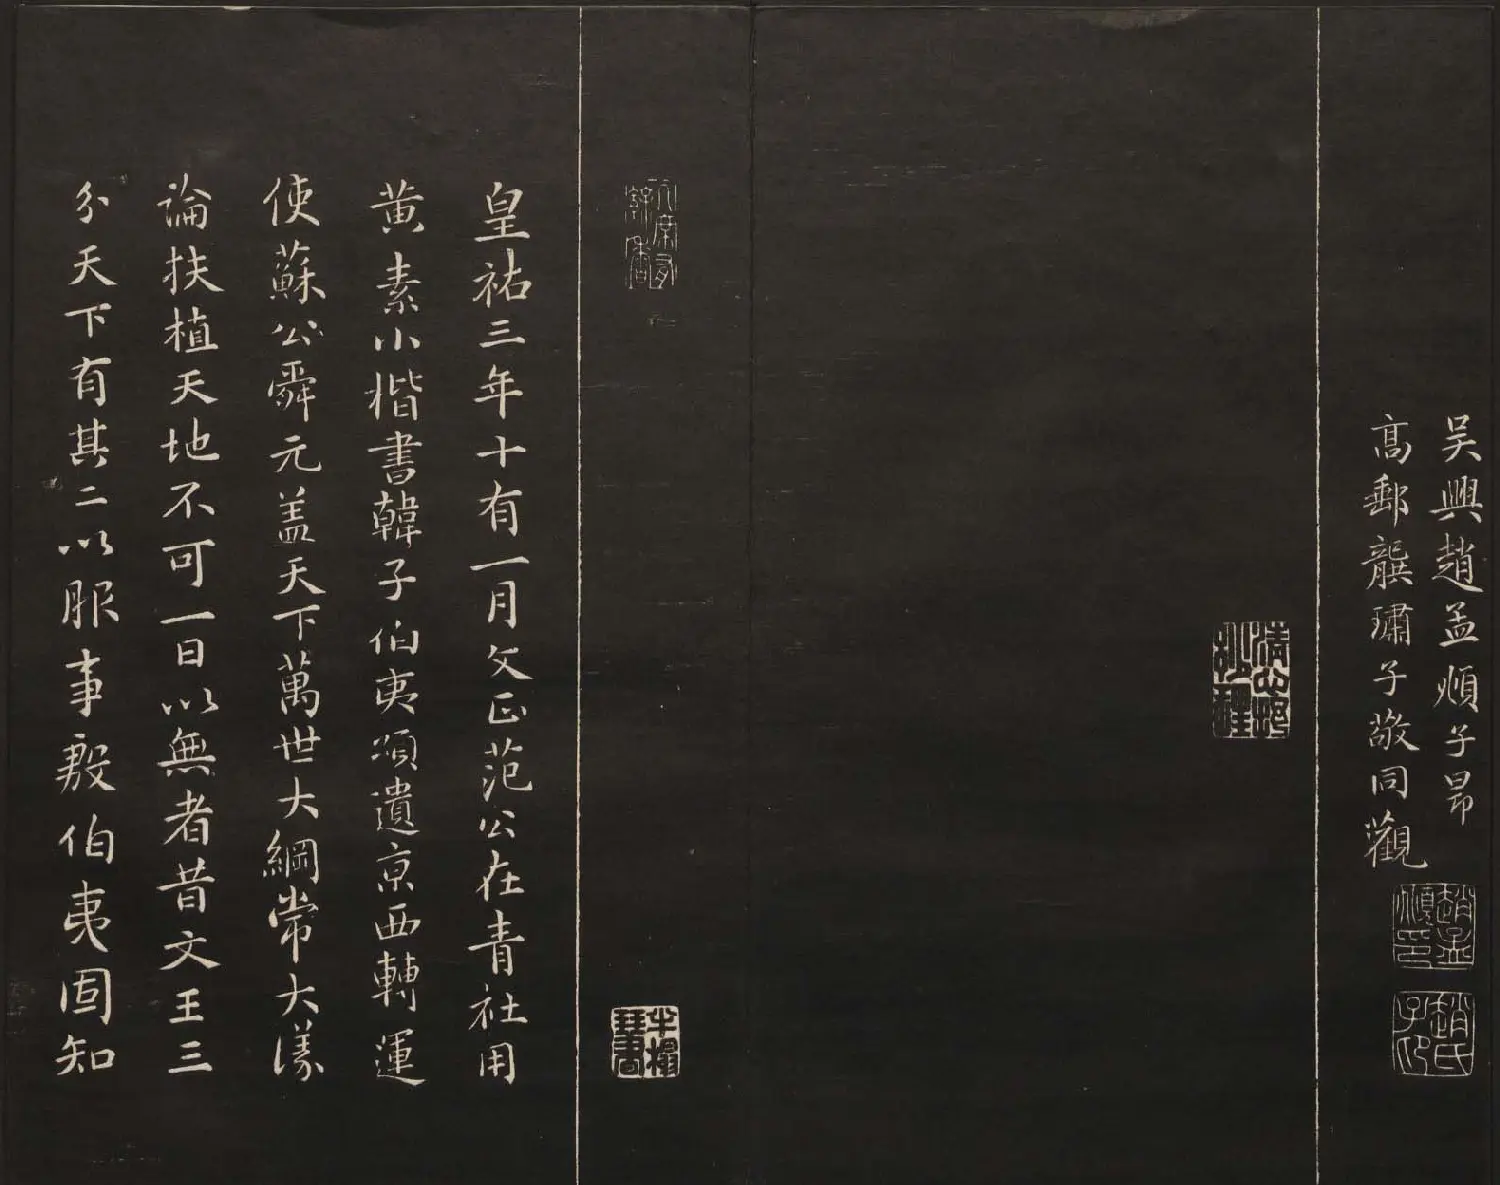 吴興趙孟頫子昂
高郵龔璛子敬同觀
趙孟頫印
趙氏子卬
皇祐三年十有一月文正范公在青社用
黄素小楷書韓子伯夷頌遺京西轉運
使蘇公舜元盖天下萬世大綱常大議
論扶植天地不可一日以無者昔文王三
分天下有其二以服事殷伯夷固知